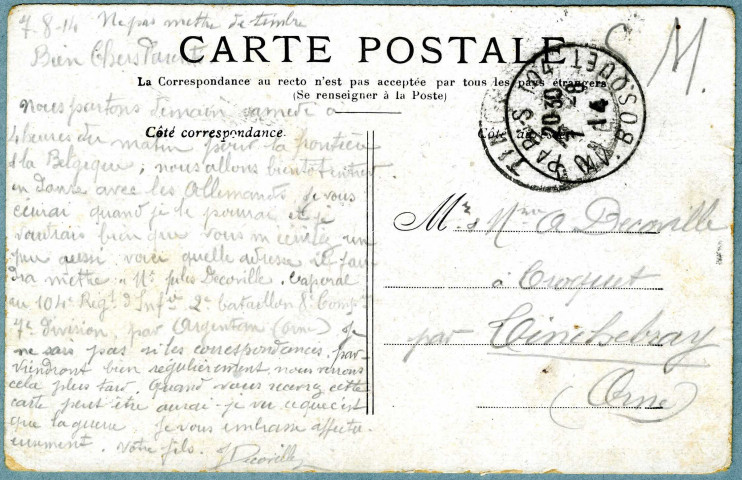 7.8-14 Ne pas mettre de timbre
Bien Chers Parents
CARTE POSTALE
S M
La Correspondance au recto n'est pas acceptée par tous les pays étrangers
(Se renseigner à la Poste)
Côté correspondance
Côté
Nous partons demain samedi a
4 heures du matin pour la frontière
d la Belgique ; nous allons bientôt entrer
en danse avec les Allemands, je vous
écrirai quand je le pourrai et je
voudrais bien que vous m'écriviez un
peu aussi voici quelle adresse il fau
dra mettre : Mr Jules Decoville, Caporal
au 104e Regt d'Infie 2e bataillon 8e Compie
7e division, par Argentan (Orne) Je
ne sais pas si les correspondances par-
viendront bien régulièrement, nous verrons
cela plus tard. Quand vous recevrez cette
carte peut être aurai-je vu ce que c'est
que la guerre. Je vous embrasse affectu
eusement. Votre fils. J Decoville
Mr & Mme A Decoville
à
par Tinchebray
(Orne)
PARIS
20 30
7 8
14
BOSQUET